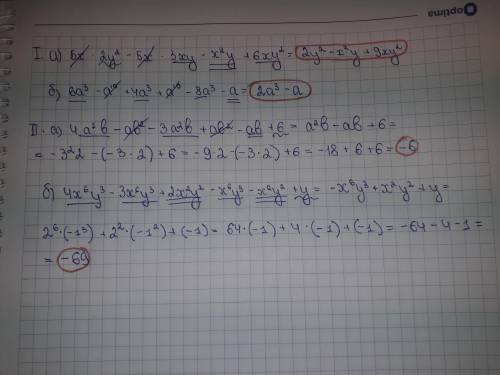 optima
I. а) 5x · 2y² - 5x · 3xy - x²y + 6xy² = 2y² - x²y + 9xy²
б) 6a³ - a⁶ + 4a³ + a⁶ - 8a³ - a = 2a³ - a
II. а) 4a²b - ab² - 3a²b + ab² - ab + 6 = a²b - ab + 6 =
= -3²·2 - (-3 · 2) + 6 = -9·2 - (-3·2) + 6 = -18 + 6 + 6 = -6
б) 4x⁶y³ - 3x⁶y³ + 2x²y² - x⁶y³ - x²y² + y = -x⁶y³ + x²y² + y =
2⁶·(-1³) + 2²·(-1²) + (-1) = 64·(-1) + 4·(-1) + (-1) = -64 - 4 - 1 =
= -69